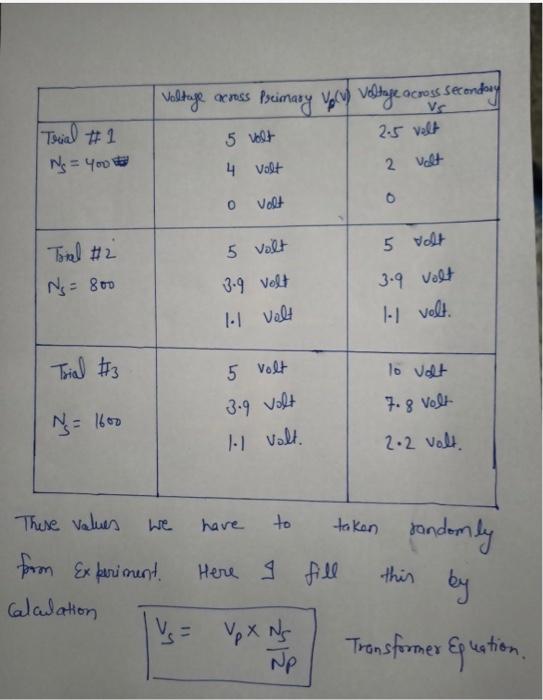 Voltage across Primary Vp(V) Voltage across secondary Vs
Trial # 1 5 volt 2.5 volt
Ns = 400 4 volt 2 volt
0 volt 0
Trial #2 5 volt 5 volt
Ns = 800 3.9 volt 3.9 volt
1.1 volt 1.1 volt.
Trial #3 5 volt 10 volt
3.9 volt 7.8 volt
Ns = 1600 1.1 volt. 2.2 volt.
These values we have to taken randomly
from Experiment. Here I fill this by
Calculation
Vs = Vp × Ns/Np Transformer Equation.